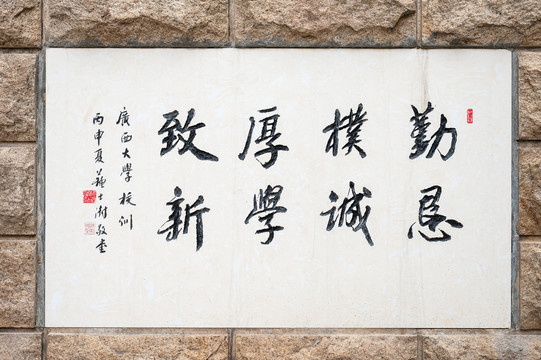 勤恳
樸誠
厚學
致新
廣西大學校训
丙申夏蘇士澍敬書